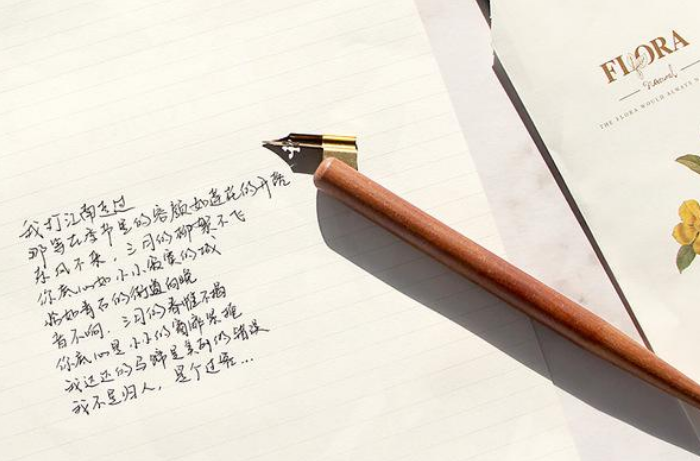 我打江南走过
那等在季节里的容颜如莲花的开落
东风不来，三月的柳絮不飞
你底心如小小寂寞的城
恰如青石的街道向晚
音不响，三月的春帷不揭
你底心是小小的窗扉紧掩
我达达的马蹄是美丽的错误
我不是归人，是个过客...
FLORA
THE FLORA WOULD ALWAYS